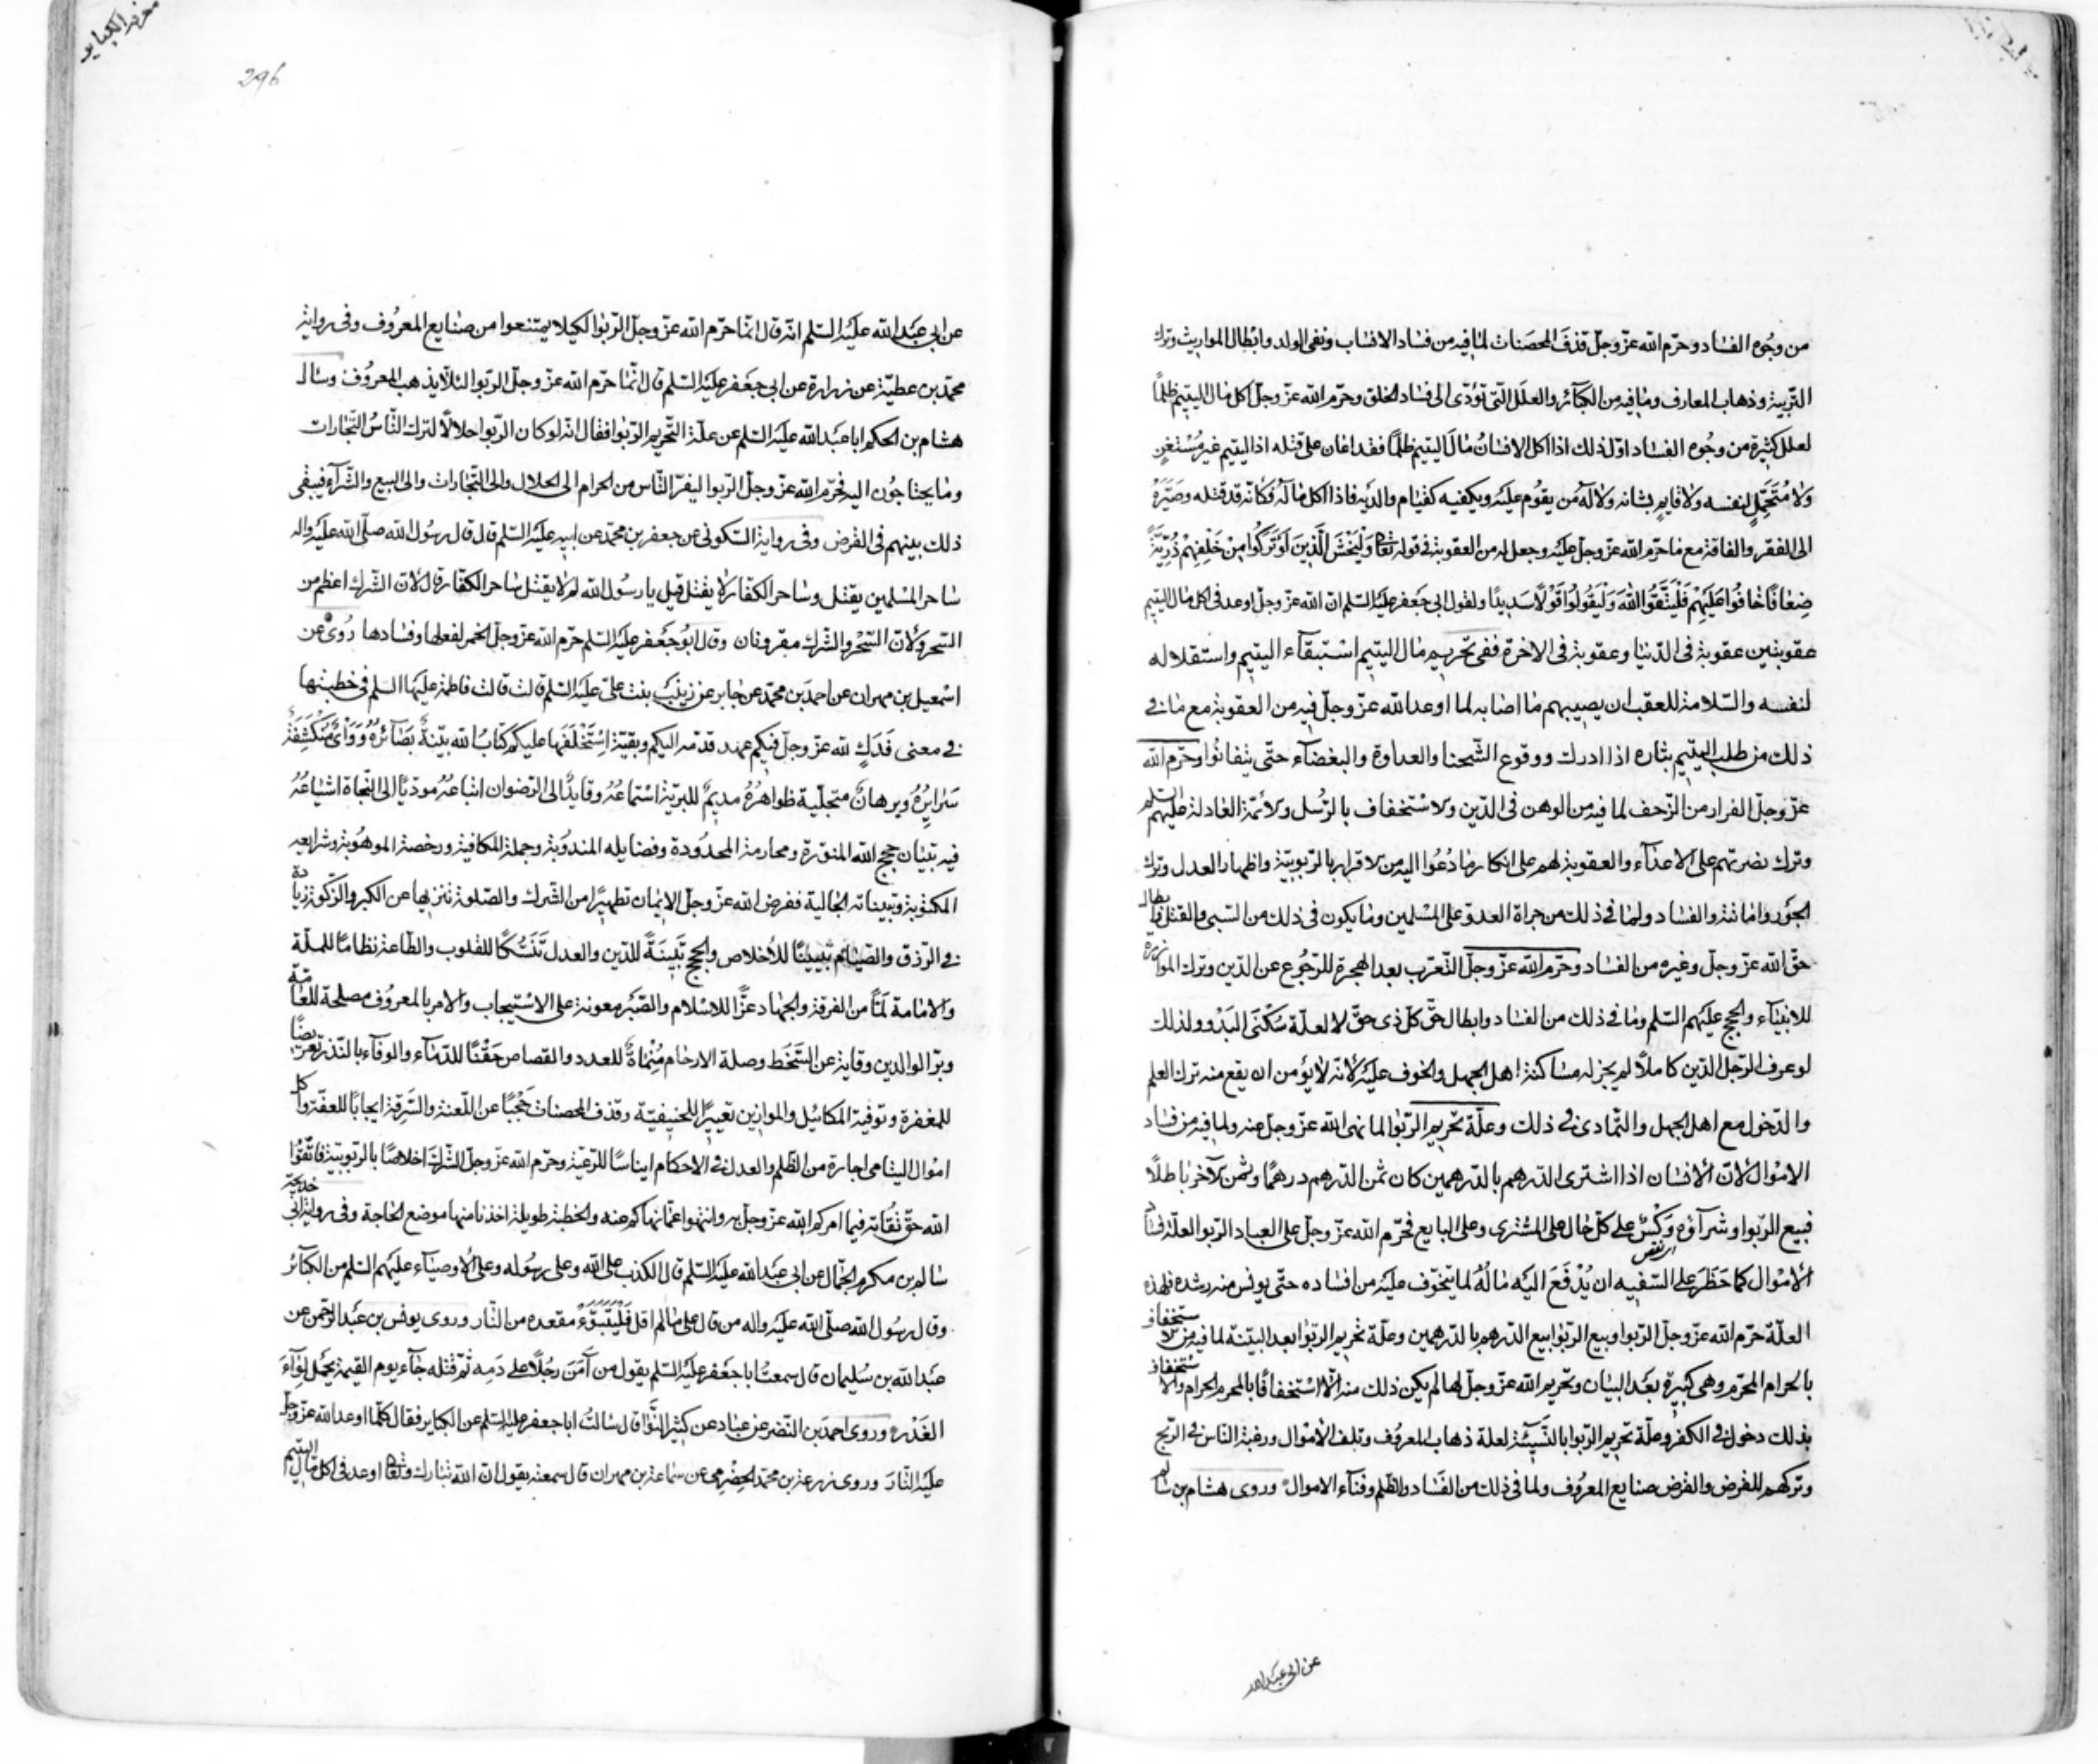 من وجُوه الفساد وحرّم الله عزّ وجلّ قذفَ المحصَنات لما فيه من فساد الانساب ونفى الولد وابطال المواريث وترك
التّربية وذهاب المعارف وما فيه من الكبآئر والعلَل الّتى تؤدّى الى فساد الخلق وحرّم الله عزّ وجلّ اكل مال اليتيم ظلمًا
لعلل كثيرة من وجُوه الفساد اوّل ذلك اذا اكل الانسانُ مالَ اليتيم ظلمًا فقد اعان على قتله اذ اليتيم غير مُسْتغنٍ
ولا مُتَحمّلٍ لنفسه ولا قايمٍ بشانه ولا له من يقوُم عليه ويكفيه كقيام والدَيه فاذا اكل ماله فكانّه قد قتله وصَيّرَهُ
الى الفقر والفاقة مع ما حرّم الله عزّ وجلّ عليه وجعل له من العقوبة فى قوله تعالى وَلْيَخْشَ الَّذِينَ لَوْ تَرَكُوا مِنْ خَلْفِهِمْ ذُرِّيَّةً
ضِعَافًا خَافُوا عَلَيْهِمْ فَلْيَتَّقُوا اللهَ وَلْيَقُولُوا قَوْلًا سَدِيدًا ولقول ابى جَعفر عليه السّلم انّ الله عزّ وجلّ اوعد فى اكل مال اليتيم
عقوبتين عقوبة فى الدّنيا وعقوبة فى الاخرة ففى تحريم مال اليتيم استبقآء اليتيم واستقلاله
لنفسه والسّلامة للعقب ان يصيبهم ما اصابه لما اوعد الله عزّ وجلّ فيه من العقوبة مع ما فى
ذلك من طلب اليتيم بثاره اذا ادرك ووقوع الشّحنا والعداوة والبغضآء حتّى يتفانوا وحرّم الله
عزّ وجلّ الفرار من الزّحف لما فيه من الوهن فى الدّين والاستخفاف بالرّسُل والائمّة العادلة عليهم السلم
وترك نصرتهم على الاعدآء والعقوبة لهم على انكار ما دُعُوا اليه من الاقرار بالرّبوبيّة واظهار العدل وترك
الجَوْر واماتته والفساد ولما فى ذلك من جراة العدوّ على المسْلمين وما يكون فى ذلك من السّبى والقتل وابطال
حقّ الله عزّ وجلّ وغيره من الفساد وحرّم الله عزّ وجلّ التّعرّب بعد الهجرة للرّجُوع عن الدّين وترك الموازرة
للانبيآء والحجج عليهم السّلم وما فى ذلك من الفساد وابطال حقّ كلّ ذى حقّ لا لعلّة سُكنَى البَدْو ولذلك
لو عرف الرّجل الدّين كاملًا لم يجز له مساكنة اهل الجهل والخوف عليه لانّه لا يؤمن ان يقع منه ترك العلم
والدّخول مع اهل الجهل والتّمادى فى ذلك وعلّة تحريم الرّبوا لما نهى الله عزّ وجلّ عنه ولما فيه من فساد
الاموال لانّ الانسان اذا اشترى الدّرهم بالدّرهمين كان ثمن الدّرهم درهمًا وثمن الآخر باطلًا
فبيع الرّبوا وشرآؤه وَكْسٌ على كلّ حال على المشترى وعلى البايع فحرّم الله عزّ وجلّ على العباد الرّبوا لعلّة فساد
الامْوال كما حَظَرَ على السّفيه ان يُدْفَعَ اليه مالُهُ لما يتخوّف عليه من افساده حتّى يونس منه رشده فلهذه
العلّة حرّم الله عزّ وجلّ الرّبوا وبيع الرّبوا بيع الدّرهم بالدّرهمين وعلّة تحريم الرّبوا بعد البيّنة لما فيه من الاستخفاف
بالحرام المحرّم وهى كبيرة بعَد البيان وتحريم الله عزّ وجلّ لها لم يكن ذلك منه الّا استخفافًا بالمحرم الحرام والاستخفاف
بذلك دخول فى الكفر وعلّة تحريم الرّبوا بالنّسيئة لعلة ذهاب المعروُف وتلف الامْوال ورغبة الناس فى الرّبح
وتركهم للقرض والقرض صنايع المعرُوف ولما فى ذلك من الفَساد والظّلم وفنآء الاموال وروى هشام بن سالم
عن ابى عبد الله
296
عن ابى عَبد الله عليه السّلم انّه قال انّما حرّم الله عزّ وجلّ الرّبوا لكيلا يمتنعوا من صنايع المعرُوف وفى رواية
محمّد بن عطيّة عن زرارة عن ابى جعَفر عليه السّلم قال انّما حرّم الله عزّ وجلّ الربوا لئلّا يذهب المعرُوف وسال
هشام بن الحكم ابا عبَد الله عليه السّلم عن علّة التّحريم الرّبوا فقال انّه لو كان الرّبوا حلالًا لترك النّاسُ التّجارات
وما يحتاجُون اليه فحرّم الله عزّ وجلّ الرّبوا ليفرّ النّاس من الحرام الى الحلال والى التّجارات والى البيع والشّرآء فيبقى
ذلك بينهم فى القرض وفى رواية السّكونى عن جعفر بن محمّد عن ابيه عليه السّلم قال قال رسُول الله صلّى الله عليه واله
ساحر المسْلمين يقتل وساحر الكفّار لا يقتل قيل يا رسُول الله لم لا يقتل ساحر الكفّار قال لانّ الشّرك اعظم من
السّحر ولانّ السّحْر والشّرك مقرونان وقال ابُو جَعْفر عليه السّلم حرّم الله عزّ وجلّ الخمر لفعلها وفسادها رُوى عن
اسْمعيل بن مهران عن احمَد بن محمّد عن جابر عن زينبَ بنت علىّ عليه السّلم قالت قالت فاطمة عليها السلم فى خطبتها
فى معنى فَدَكٍ لله عزّ وجلّ فيكم عهد قدّمه اليكم وبقيّة اِسْتَخْلَفَها عليكم كتابُ الله بيّنةٌ بَصَآئرُهُ وَوَاىٌ مُنْكَشِفَةٌ
سَرايرُهُ وبرهانٌ متجلّية ظواهرُهُ مديمٌ للبريّة اسْتماعُهُ وقايدٌ الى الرّضوان اتباعهُ موديًا الى النّجاة اشياعُهُ
فيه تبيان حجج الله المنوّرة ومحارمة المحدُودة وفضايله المندوُبة وجملة الكافية ورخصة الموهُوبة وشرايعه
المكتوبة وتبيناته الجالية ففرض الله عزّ وجلّ الايْمان تطهيرًا من الشّرك والصّلوة تنزيها عن الكبر والزّكوة زيادة
فى الرّزق والصّيام تبيينًا للأخلاص والحجّ تَبِينَةً للدّين والعدل تَنَسُّكًا للقلوب والطّاعة نظامًا للملّة
والامامة لَمًّا من الفرقة والجهاد عزًّا للاسْلام والصّبَر معونة على الاسْتيجاب والامر بالمعروُف مصلحة للعامّة
وبرّ الوالدين وقاية عن السَّخَط وصلة الارحام مِنْماةً للعدد والقصاص حَقْنًا للدّمآء والوفآء بالنّذر تعريضًا
للمغفرة وتوفية المكائيل والموازين تعييرًا للحنيفيّة وقذف المحصنات حَجْبًا عن اللّعنة والسَّرِقَة ايجابًا للعفّة واكل
امْوال اليتامى اجارة من الظّلم والعدل فى الاحكام ايناسًا للرّعيّة وحرّم الله عزّ وجلّ الشّركَ اخلاصًا بالرّبوبيّة فاتّقوُا
الله حقّ تُقَاته فيما امركم الله عزّ وجلّ به وانتهوا عمّا نهاكم عنه والخطبة طويلة اخذنا منها موضع الحاجة وفى رواية ابى خديجة
سالم بن مكرم الجمّال عن ابى عَبد الله عليه السّلم قال الكذب على الله وعلى رسُوله وعلى الاوصيآء عليهم السّلم من الكبآئر
وقال رسُول الله صلّى الله عليه واله من قال علىّ ما لم اقل فَلْيَتَبَوَّءْ مقعده من النّار وروى يونس بن عَبد الرّحمن عن
عبَد الله بن سُليمان قال سمعتُ ابا جعَفر عليه السّلم يقول من آمَنَ رجُلًا على دَمِه ثمّ قتله جآء يوم القيمة يحمل لوآءَ
الغَدْر وروى احمَد بن النّضر عن عباد عن كثير النَّوّا قال سالتُ ابا جعفر عليه السّلم عن الكباير فقال كلّما اوعد الله عزّ وجلّ
عليه النّارَ وروى زرعة بن محمّد الحضرمى عن سماعة بن مهران قال سمعته يقول انّ الله تبارك وتعالى اوعد فى اكل مال اليتيم